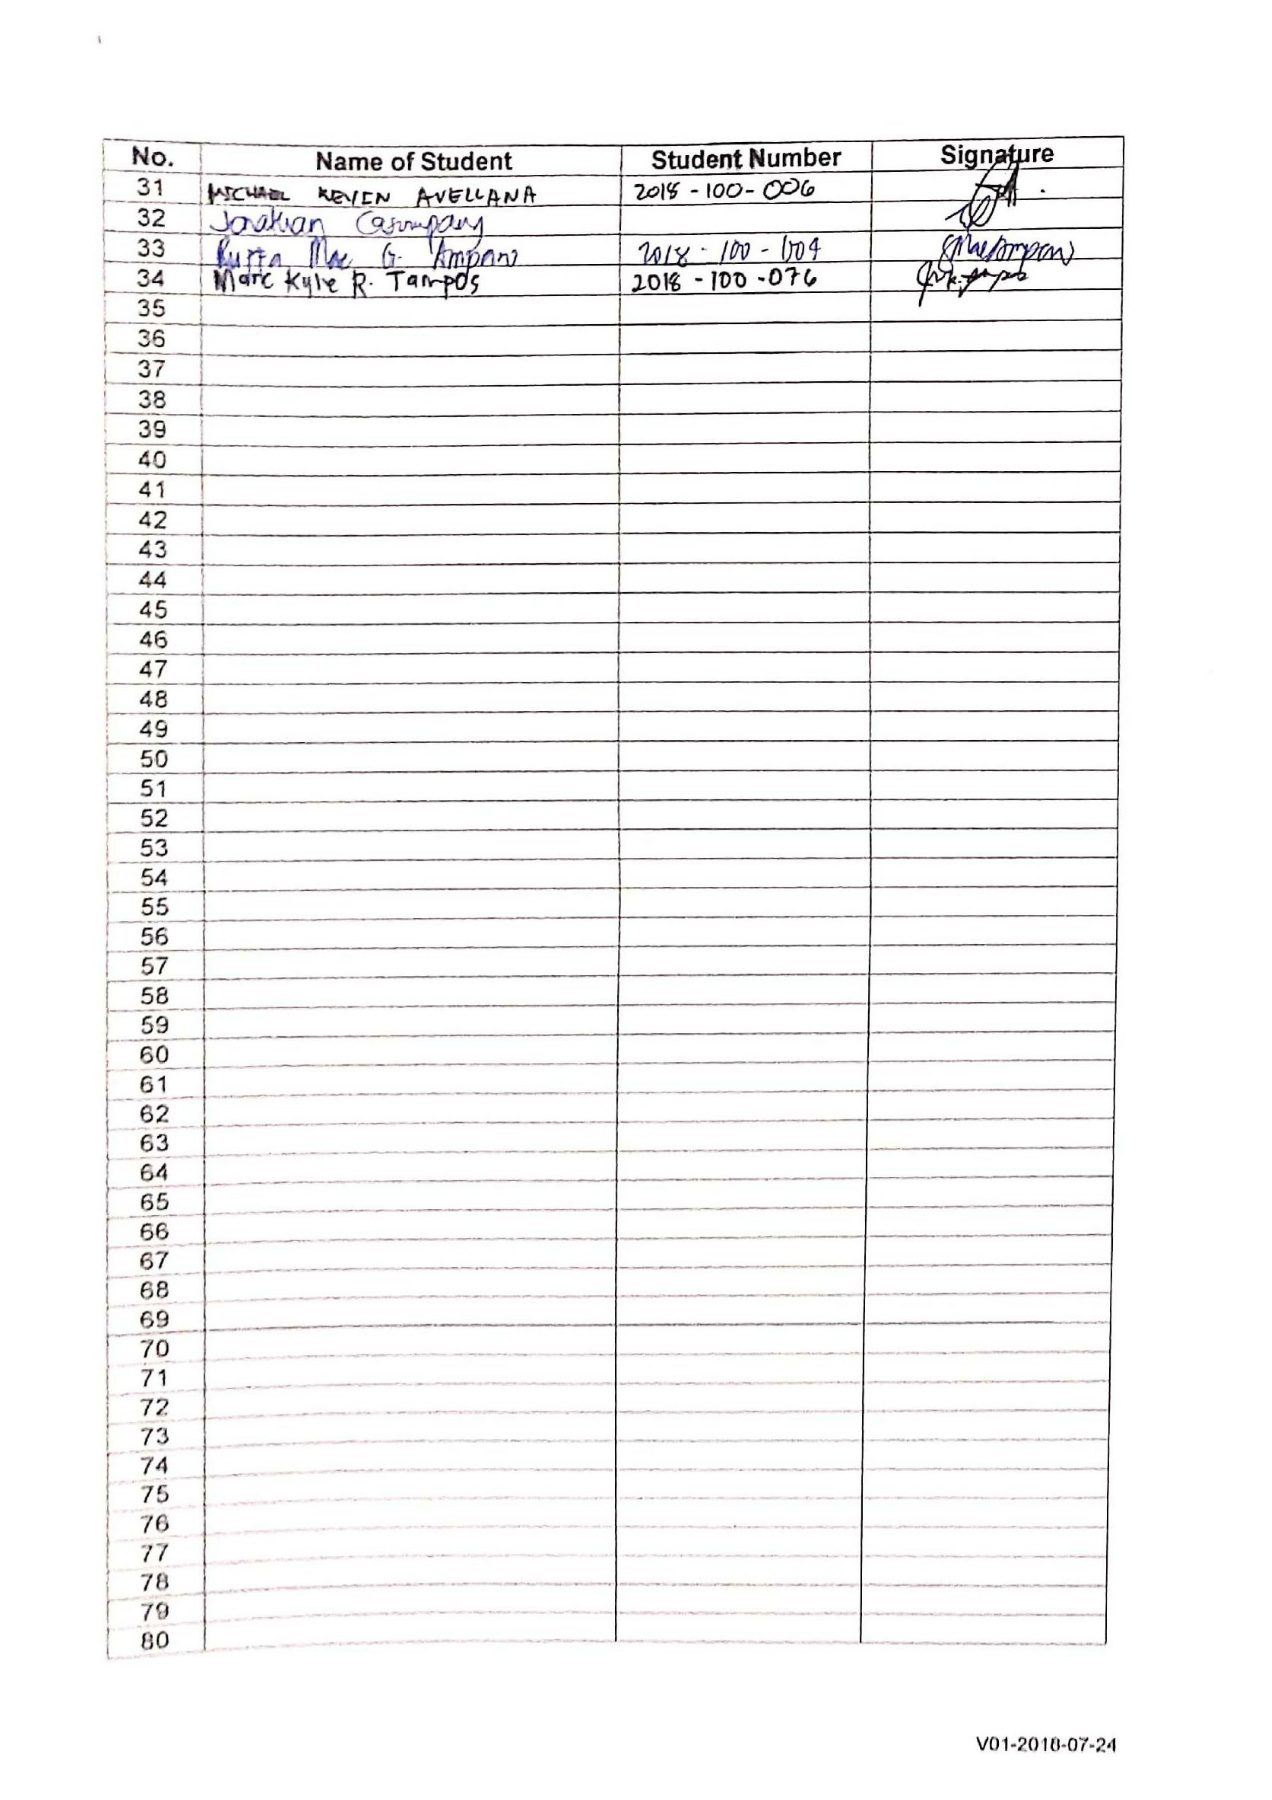 No. Name of Student Student Number Signature
31 MICHAEL KEVIN AVELLANA 2018-100-006
32 Jonathan
33 Mae G. Ampano 2018-100-109
34 Marc Kyle R. Tampos 2018-100-076
35
36
37
38
39
40
41
42
43
44
45
46
47
48
49
50
51
52
53
54
55
56
57
58
59
60
61
62
63
64
65
66
67
68
69
70
71
72
73
74
75
76
77
78
79
80
V01-2018-07-24